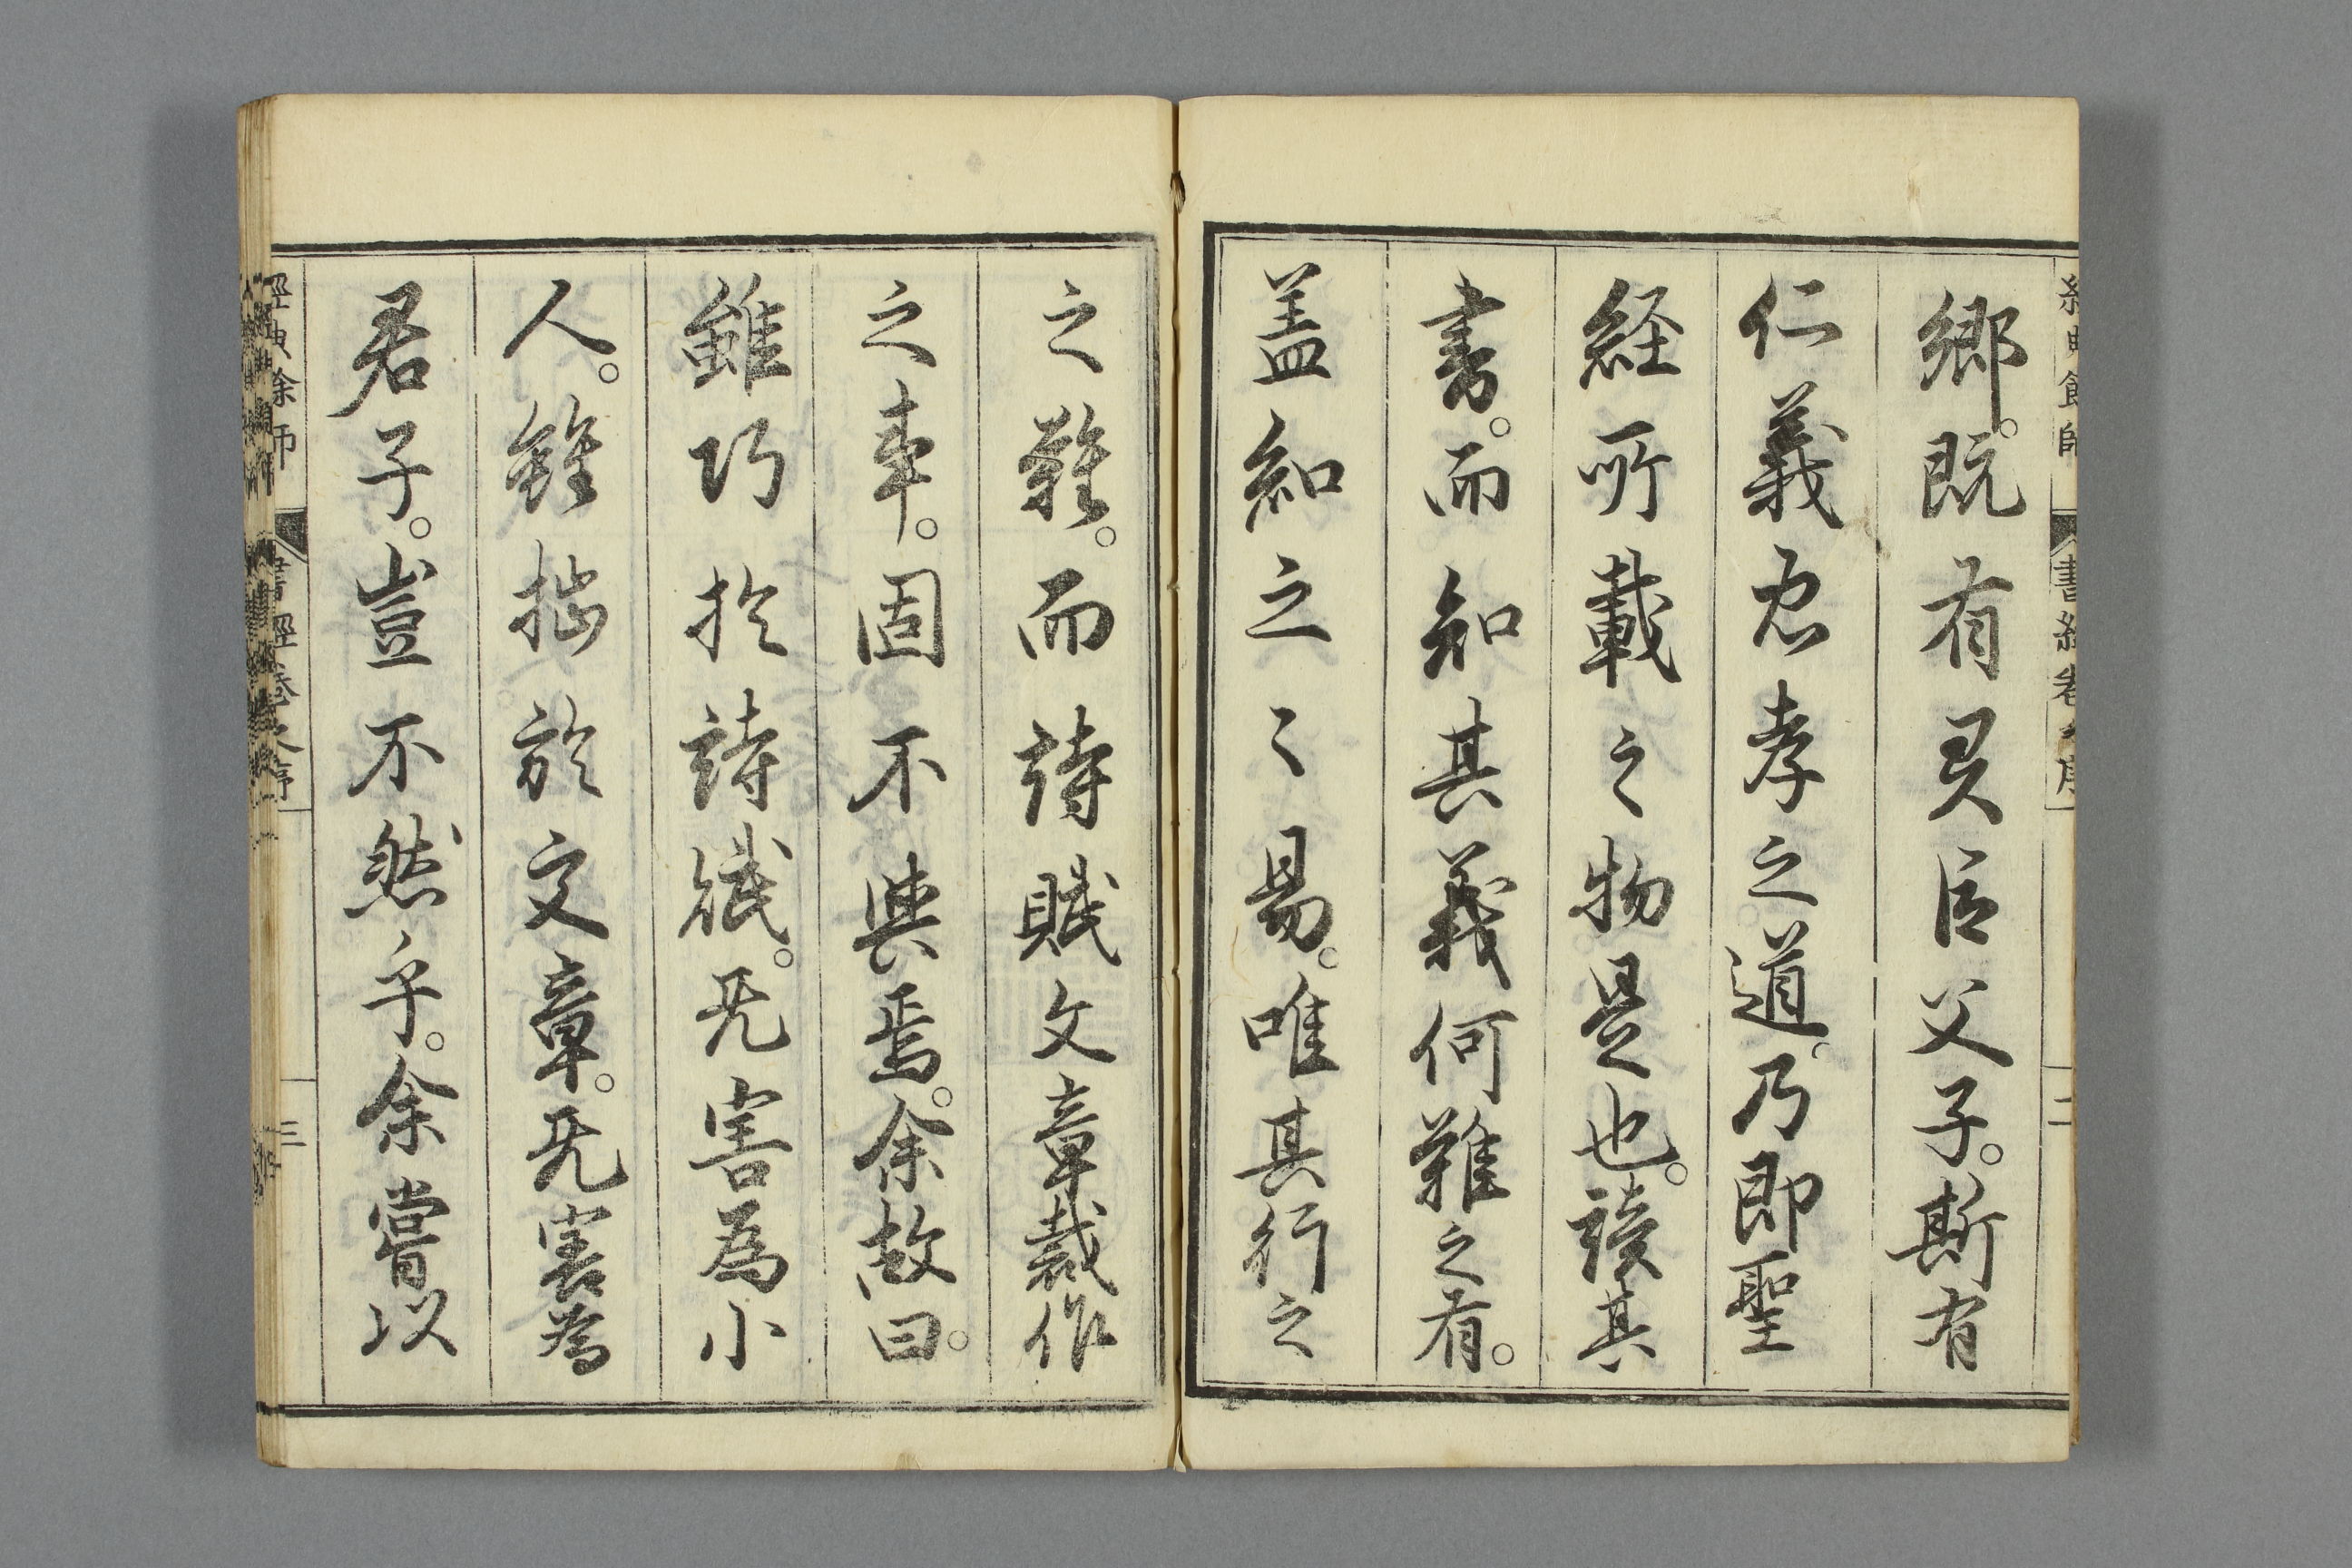 鄉。既有君臣父子。斯有
仁義忠孝之道。乃即聖
経所載之物是也。讀其
書。而知其義何難之有。
盖知之〻易。唯其行之
之難。而詩賦文章裁作
之事。固不與焉。余故曰。
雖巧於詩賦。旡害為小
人。雖拙於文章。旡害為
君子。豈不然乎。余嘗以
經典餘師
書經卷之序
三